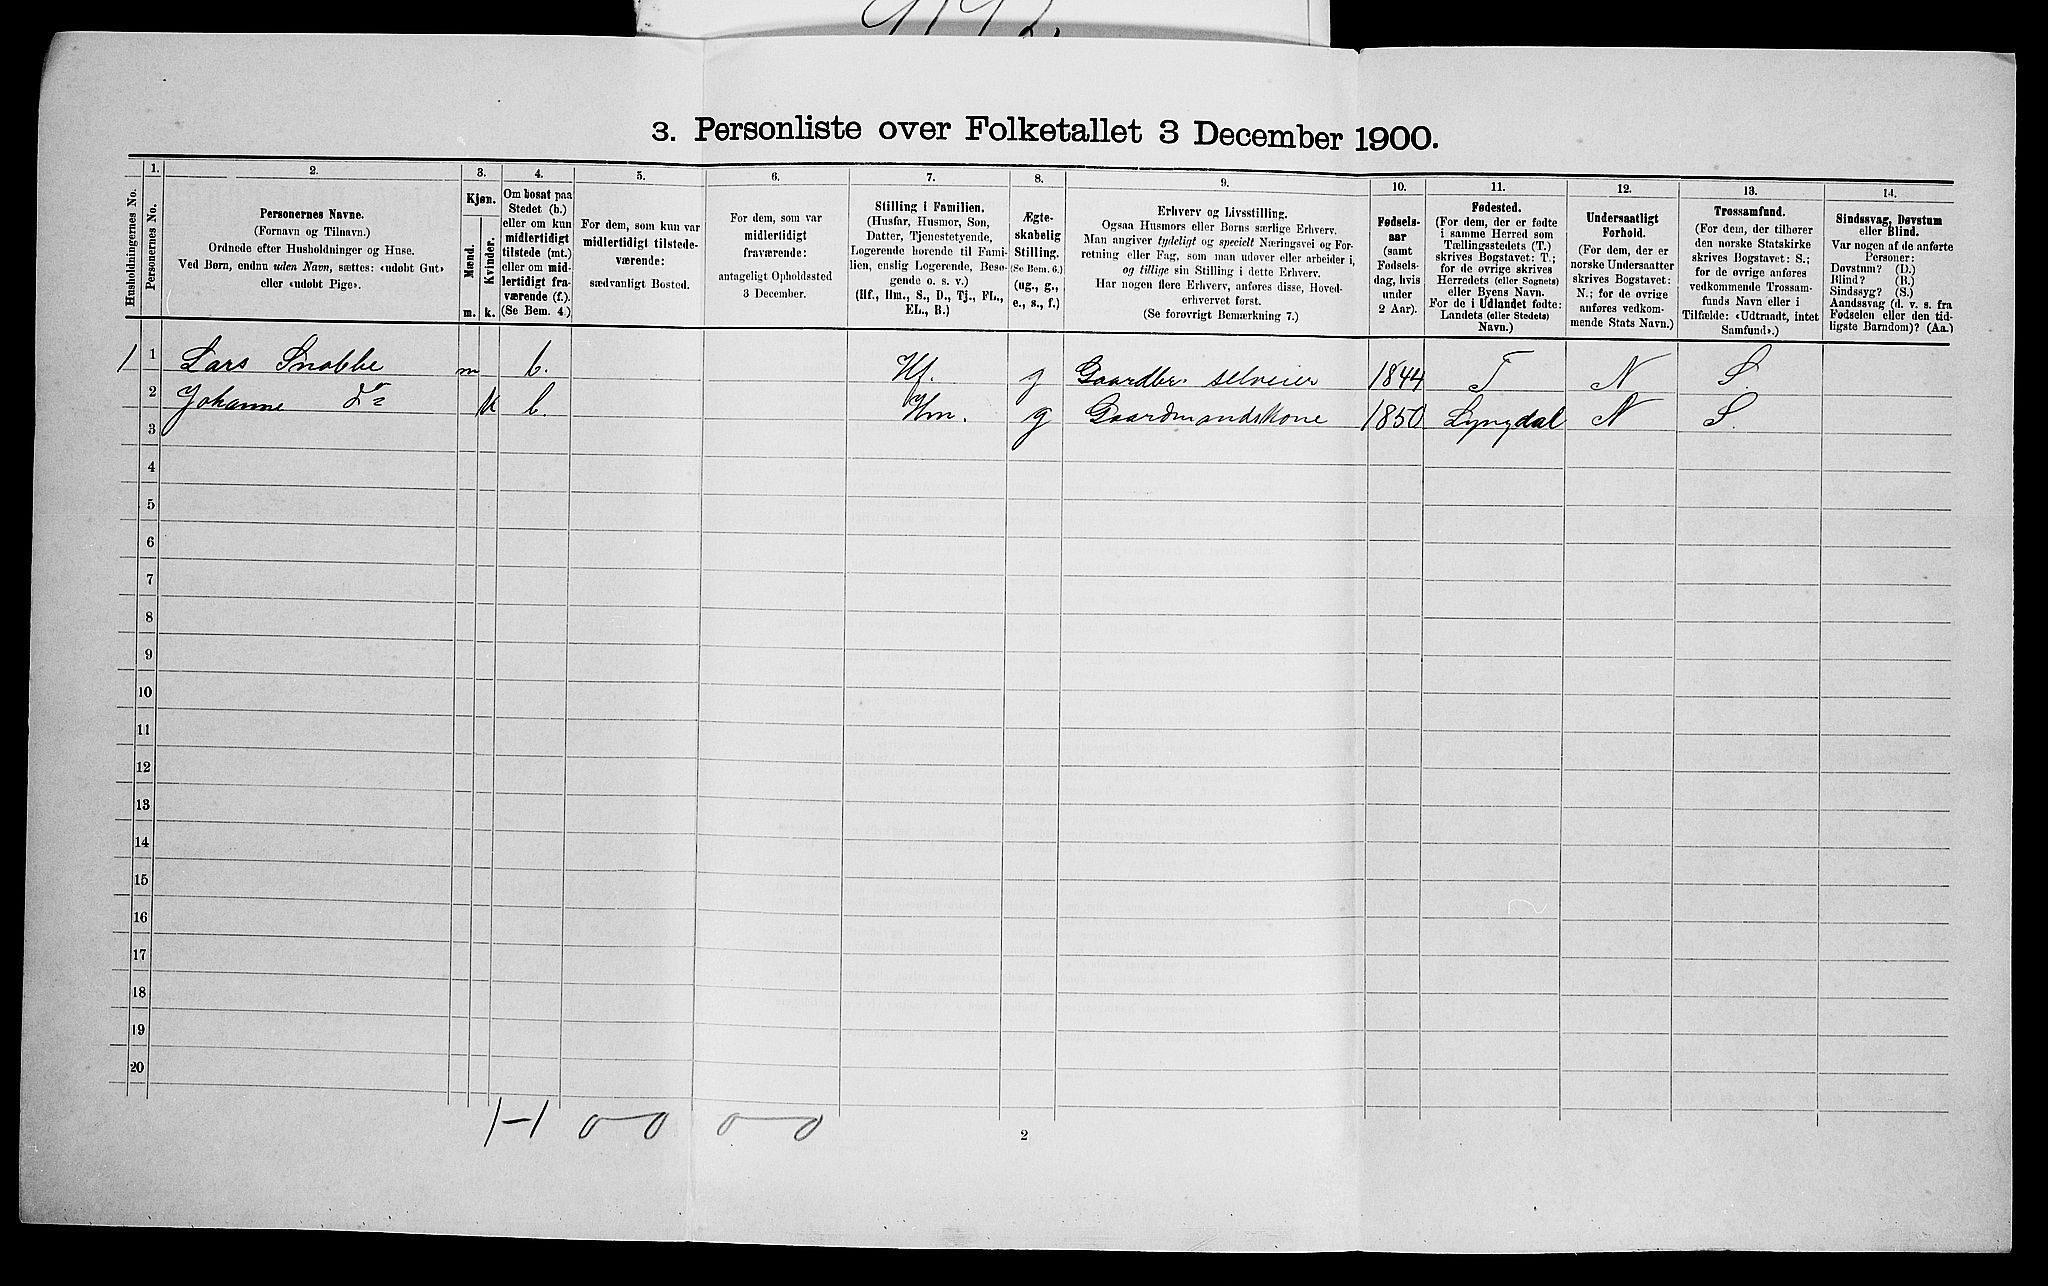 3. Personliste over Folketallet 3 December 1900.
Husholdningernes No.
1.
Personernes No.
2.
Personernes Navne.
(Fornavn og Tilnavn.)
Ordnede efter Husholdninger og Huse.
Ved Børn, endnu uden Navn, sættes: «udøbt Gut»
eller «udøbt Pige».
3.
Kjøn.
Mænd.
Kvinder.
m.
k.
4.
Om bosat paa
Stedet (b.)
eller om kun
midlertidigt
tilstede (mt.)
eller om mid-
lertidigt fra-
værende (f.).
(Se Bem. 4.)
5.
For dem, som kun var
midlertidigt tilstede-
værende:
sædvanligt Bosted.
6.
For dem, som var
midlertidigt
fraværende:
antageligt Opholdssted
3 December.
7.
Stilling i Familien.
(Husfar, Husmor, Søn,
Datter, Tjenestetyende,
Logerende hørende til Fami-
lien, enslig Logerende, Besø-
gende o. s. v.)
(Hf., Hm., S., D., Tj., FL.,
EL., B.)
8.
Ægte-
skabelig
Stilling.
(Se Bem. 6.)
(ug., g.,
e., s., f.)
9.
Erhverv og Livsstilling.
Ogsaa Husmors eller Børns særlige Erhverv.
Man angiver tydeligt og specielt Næringsvei og For-
retning eller Fag, som man udøver eller arbeider i,
og tillige sin Stilling i dette Erhverv.
Har nogen flere Erhverv, anføres disse, Hoved-
erhvervet først.
(Se forøvrigt Bemærkning 7.)
10.
Fødsels-
aar
(samt
Fødsels-
dag, hvis
under
2 Aar).
11.
Fødested.
(For dem, der er fødte
i samme Herred som
Tællingsstedets (T.)
skrives Bogstavet: T.;
for de øvrige skrives
Herredets (eller Sognets)
eller Byens Navn.
For de i Udlandet fødte:
Landets (eller Stedets)
Navn.)
12.
Undersaatligt
Forhold.
(For dem, der er
norske Undersaatter
skrives Bogstavet:
N.; for de øvrige
anføres vedkom-
mende Stats Navn.)
13.
Trossamfund.
(For dem, der tilhører
den norske Statskirke
skrives Bogstavet: S.;
for de øvrige anføres
vedkommende Trossam-
funds Navn eller i
Tilfælde: «Udtraadt, intet
Samfund».)
14.
Sindssvag, Døvstum
eller Blind.
Var nogen af de anførte
Personer:
Døvstum? (D.)
Blind? (B.)
Sindssyg? (S.)
Aandssvag (d. v. s. fra
Fødselen eller den tid-
ligste Barndom)? (Aa.)
1 1 Lars Snabbe m b. Hf. g Gaardbr. selveier 1844 T N S.
2 Johanne Do k b. Hm. g Gaardmandskone 1850 Lyngdal N S.
3
4
5
6
7
8
9
10
11
12
13
14
15
16
17
18
19
20
1-1 0-0 0-0
2